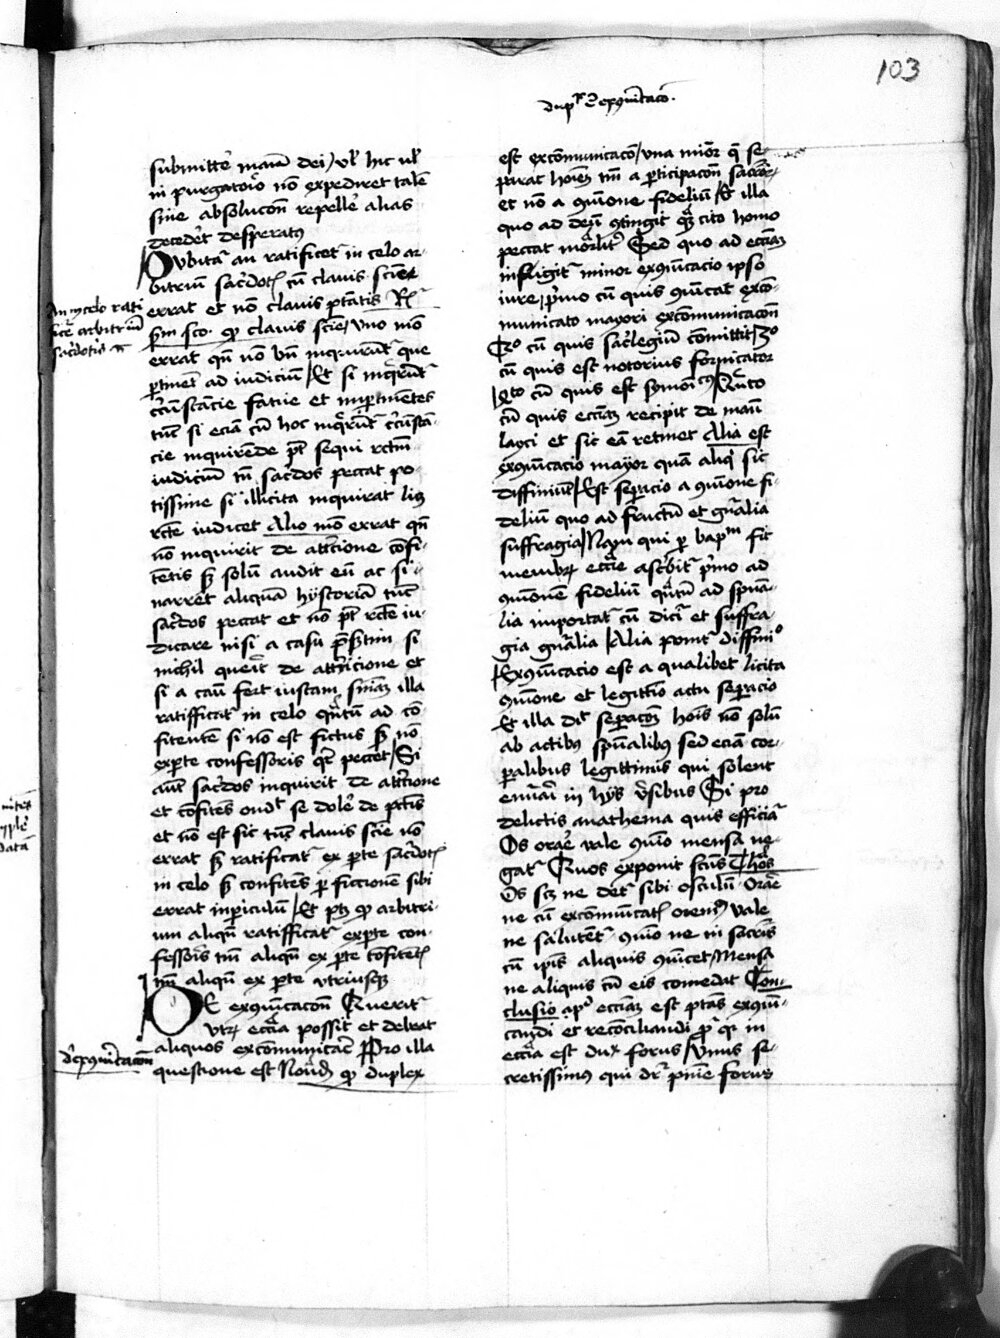 103
dupᵉ excōicacō.
submittē manū dei / vł hic uł
in purgatorio nō expediret talē
sine absolucōn repellē alias
decedēt desperatꝰ
Dubitaͬ an ratificetͬ in celo ar-
bitriū sacͥdotꝭ cū clavis scīe
errat et nō clavis ptātis Rͬ
sm̄ sco. ꝙ clavis scīe / uno mō
errat qn̄ nō bn̄ inquirūt que
ꝑtinēt ad iudiciū / Et si inqͥrūt
cͥcūstācie fatue et inꝑtinētes
tūc si eciā cū hoc inqͥrūt cͥcūstā-
cie inquirēde pōt sequi rectm̄
iudiciū tn̄ sacͥdos peccat po-
tissime si illicita inquirat licꝫ
rcte iudicet Alio mō errat qn̄
nō inquirit de attͥcione cōfi-
tētis sꝫ solū audit eū ac si
narrēt aliquā hystoriā tūc
sacͥdos peccat et nō pōt rcte iu-
dicare nisi a casu pͬsertim si
nichil querit de attͥicione et
si a casu fert iustam sn̄iaꝫ illa
ratifficatͬ in celo qͣntū ad cō-
fitentē si nō est fictus sꝫ nō
ex ꝑte confessoris qͬ peccet / Si
aūt sacͥdos inquirit de attͥcione
et cōfitēs ondͭ se dolē de pctīs
et nō est sic tūc clavis scīe nō
errat sꝫ ratificatͬ ex ꝑte sacͥdotꝭ
in celo sꝫ confitēs ꝑ ficcionē sibi
errat in ꝑiculū / Et ptꝫ ꝙ arbitri-
um aliqn̄ ratifficatͬ ex ꝑte con-
fessoris tm̄ aliqn̄ ex ꝑte cōfitētꝭ
tm̄ aliqn̄ ex ꝑte utriusqꝫ
DE excōicacōn Queritͬ
utrꝫ ecciā possit et debeat
aliquos excōmunicāē Pro illa
questione est Notādꝫ ꝙ duplex
An in celo rati
ficetͬ arbitriū
sacͥdotis
de excōicacōn
est excōmunicacō / una minor q̄ se-
parat hoīeꝫ tm̄ a ꝑticipacōn sacrōꝝ
et nō a cōione fideliū / Et illa
quo ad deū cōtingit qͣꝫ cito homo
peccat mortͣlitͬ Sed quo ad ecciaꝫ
infligitͬ minor excōicacio ipso
iure / pͥmo cū quis cōicat exco-
municato maiori excōmunicacōn
2ͦ cū quis sacͥlegiū cōmittit / 3ͦ
cū quis est notorius fornicator
4ͭͦ cū quis est symoīcꝰ / Quīto
cū quis ecciaꝫ recipit de manū
layci et sic eā retinet Alia est
excōicacio mayor quā aliqͥ sic
diffiniūt / Est seꝑacio a cōione fi-
deliū quo ad fructū et gn̄alia
suffragia / Nam qui ꝑ bapͫ fit
membrꝫ eccīe ascͥbitͬ pͥmo ad
cōionē fideliū qͣntū ad spūa-
lia importatͬ cū dicitͬ et suffra-
gia gn̄alia / Alia ponitͬ diffinicͦ
Excōicacio est a qualibet licita
cōione et legittīo actu seꝑacio
Et illa dꝭ seꝑacōꝫ hoīs nō solū
ab actibꝫ spūalibus sed eciā cor-
ꝑalibus legittimis qui solent
enūari in hijs ṽsibus Si pro
delictis anathema quis efficiatͬ
Os orare vale cōio mensa ne-
gatͬ Quos exponit scūs Thoās
Os scꝫ ne detͬ sibi osculū Orāre
ne cū excōmunicatꝭ orem̄ꝰ vale
ne salutētͬ cōio ne in sacrīs
cū ipīs aliquis cōicet Mensa
ne aliquis cū eis comedat Con-
clusio apͩ ecciaꝫ est ptās excōi-
candi et reconciliandi pͬ qͬ in
ecciā est duplꝫ forus / Unus se-
cretissimꝰ qui dͬ pnīe forus